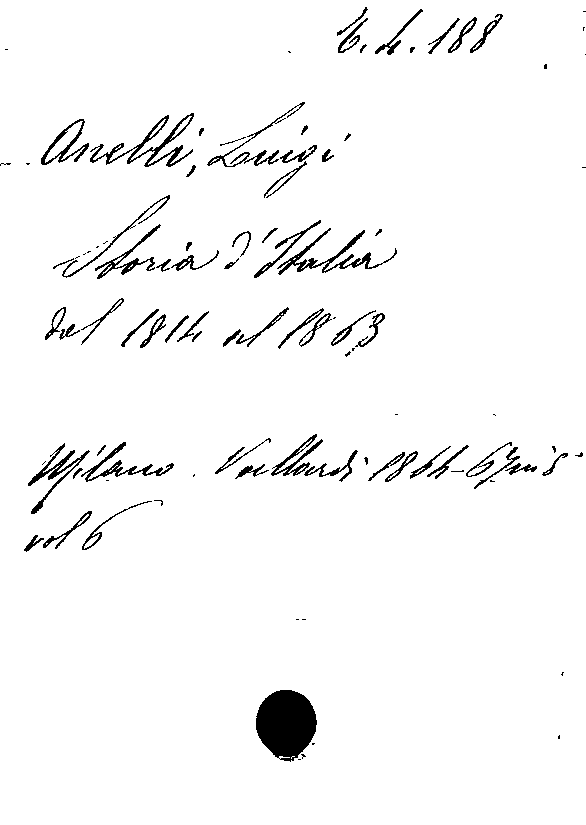 4.188
Anelli, Luigi
Storia d'Italia
dal 1814 al 1863
Milano. Vallardi 1864-67 in 8°
vol 6